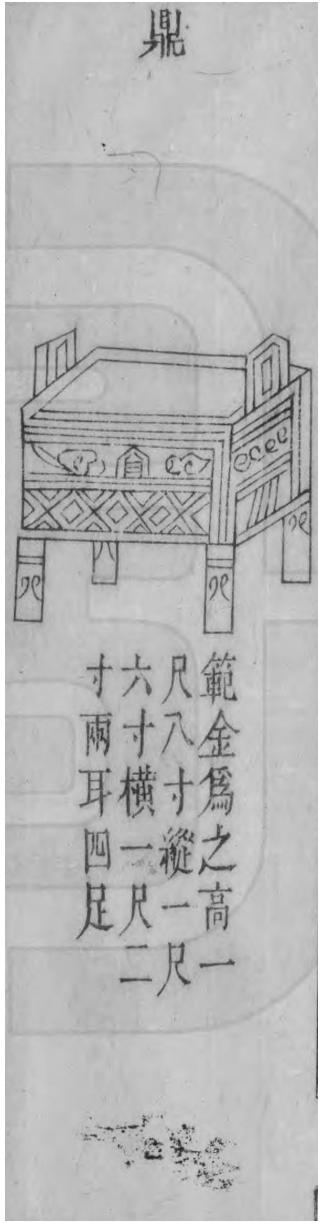 鼎
範金爲之高一
尺八寸縱一尺
六寸橫一尺二
寸兩耳四足